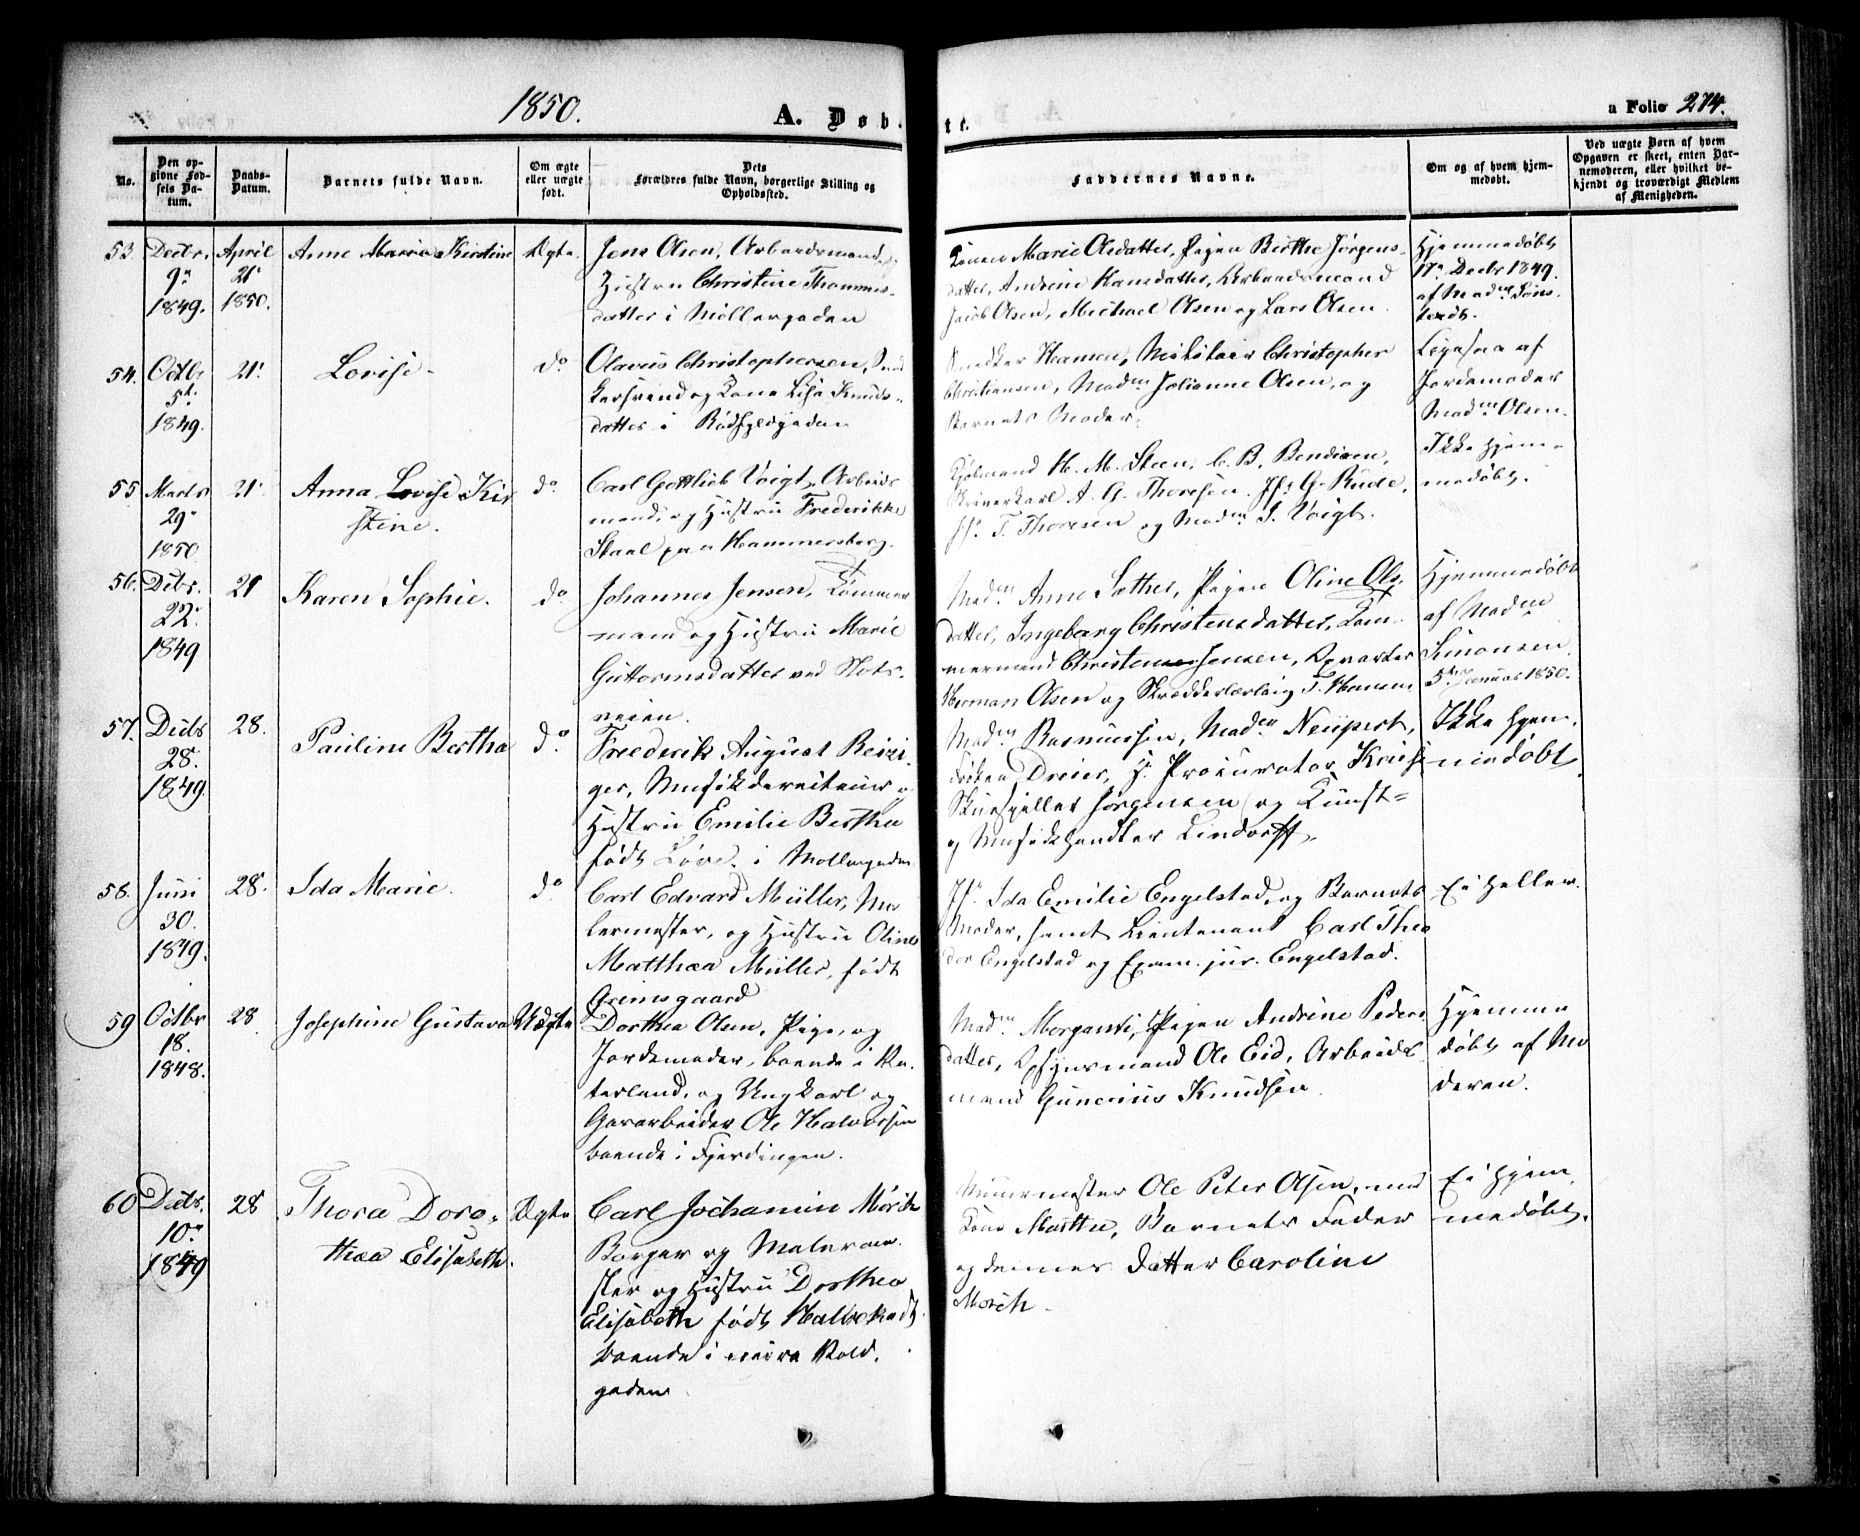 1850.
A. Døb-
te.
a Folio 274.
No.
Den op-
givne Fød-
sels Da-
tum.
Daabs-
Datum.
Barnets fulde Navn.
Om ægte
eller uægte
født.
Dets
Forældres fulde Navn, borgerlige Stilling og
Opholdssted.
Faddernes Navne.
Om og af hvem hjem-
medøbt.
Ved uægte Børn af hvem
Opgaven er skeet, enten Bar-
nemoderen, eller hvilket be-
kjendt og troværdigt Medlem
af Menigheden.
53.
Decbr.
9de
1849.
April
21
1850.
Anne Maria Kirstine
Ægte
Jens Olsen, Arbeidsmand, og
Hustru Christine Thommes-
datter i Möllergaden
Konen Marie Olsdatter, Pigen Birthe Jörgens-
datter, Andrine Hansdatter, Arbeidsmand
Jacob Olsen, Michael Olsen og Lars Olsen.
Hjemmedøbt
17de Decbr 1849.
af Madme
54.
Octbr
5te
1849.
21.
Lovise.
do
Olavus Christophersen, Sned
kersvend og Kone Lisa Knuds-
datter i Rödfyldgaden
Snedker Hansen, Militair Christopher
Christiansen, Madme Julianne Olsen, og
Barnets Moder.
Ligesaa af
Jordemoder
Madme Olsen.
55
Marts
29
1850
21.
Anna Lovise Kir
stine.
do
Carl Gottlieb Voigt, Arbeids
mand, og Hustru Frederikke
Staal paa Hammersborg.
Kjøbmand H. M. Steen, C. B. Bendixen,
A. G. Thoresen. Jfr G. Rude,
Jfr T. Thoresen og Madme S. Voigt.
Ikke hjem-
medøbt.
56.
Decbr.
22.
1849
21
Karen Sophie.
do
Johannes Jensen, Tömmer
mand og Hustru Marie
Guttormsdatter ved Slots-
veien.
Madme Anne Sæther, Pigen Oline Ols-
datter, Ingeborg Christensdatter, Töm-
mermand Christen Jensen, Opvarter
Herman Olsen og Skrædderlærling T. Hansen
Hjemmedøbt
af Madme
Simonsen
5te Januar 1850.
57.
Decbr
28.
1849.
28.
Pauline Bertha
do
Freederik August Reizi-
ger, Musikdirecteur og
Hustru Emilie Bertha
født Löve. i Mollergaden
Madme Rasmussen, Madme Neupert,
Fröken Dreier, Hr Procurator Kruse
Skuespiller Jörgensen og Kunst-
og Musikhandler Lindorff.
Ikke hjem-
medøbt
58.
Juni
30.
1849.
28.
Ida Marie.
do
Carl Edvard Müller, Ma
lermester, og Hustru Oline
Matthæa Müller, født
Grimsgaard
Jfr Ida Emilie Engelstad, og Barnets
Moder, samt Lieutenant Carl Theo
dor Engelstad og Exam. jur. Engelstad.
Ei heller.
59
Octbr
18.
1848.
28
Josephine Gustava
Uægte
Dorthea Olsen, Pige, og
Jordemoder, boende i Va-
terland, og Ungkarl og
Gararbeider Ole Halvorsen
boende i Fjerdingen.
Madme Morganti, Pigen Andrine Peders
datter, Opsynsmand Ole Eid, Arbeids
mand Gunerius Knudsen.
Hjemme
døbt af Mo
deren.
60
Decbr.
10de
1849
28
Thora Doro-
thea Elisabeth.
Ægte
Carl Jochamin Mörch
Borger og Malerme-
ster og Hustru Dorthea
Elisabeth født
boende i övre Vold-
gaden
Muurmester Ole Peter Olsen, med
Kone Marthe, Barnets Fader
og dennes Datter Caroline
Morch.
Ei hjem-
medøbt.